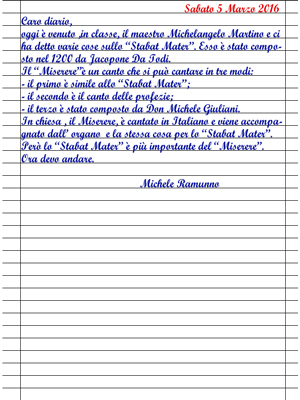 Sabato 5 Marzo 2016
Caro diario,
oggi è venuto ,in classe, il maestro Michelangelo Martino e ci
ha detto varie cose sullo “Stabat Mater”. Esso è stato compo-
sto nel 1200 da Jacopone Da Todi.
Il “Miserere”è un canto che si può cantare in tre modi:
- il primo è simile allo “Stabat Mater”;
- il secondo è il canto delle profezie;
- il terzo è stato composto da Don Michele Giuliani.
In chiesa , il Miserere, è cantato in Italiano e viene accompa-
gnato dall’ organo e la stessa cosa per lo “Stabat Mater”.
Però lo “Stabat Mater” è più importante del “Miserere”.
Ora devo andare.
Michele Ramunno